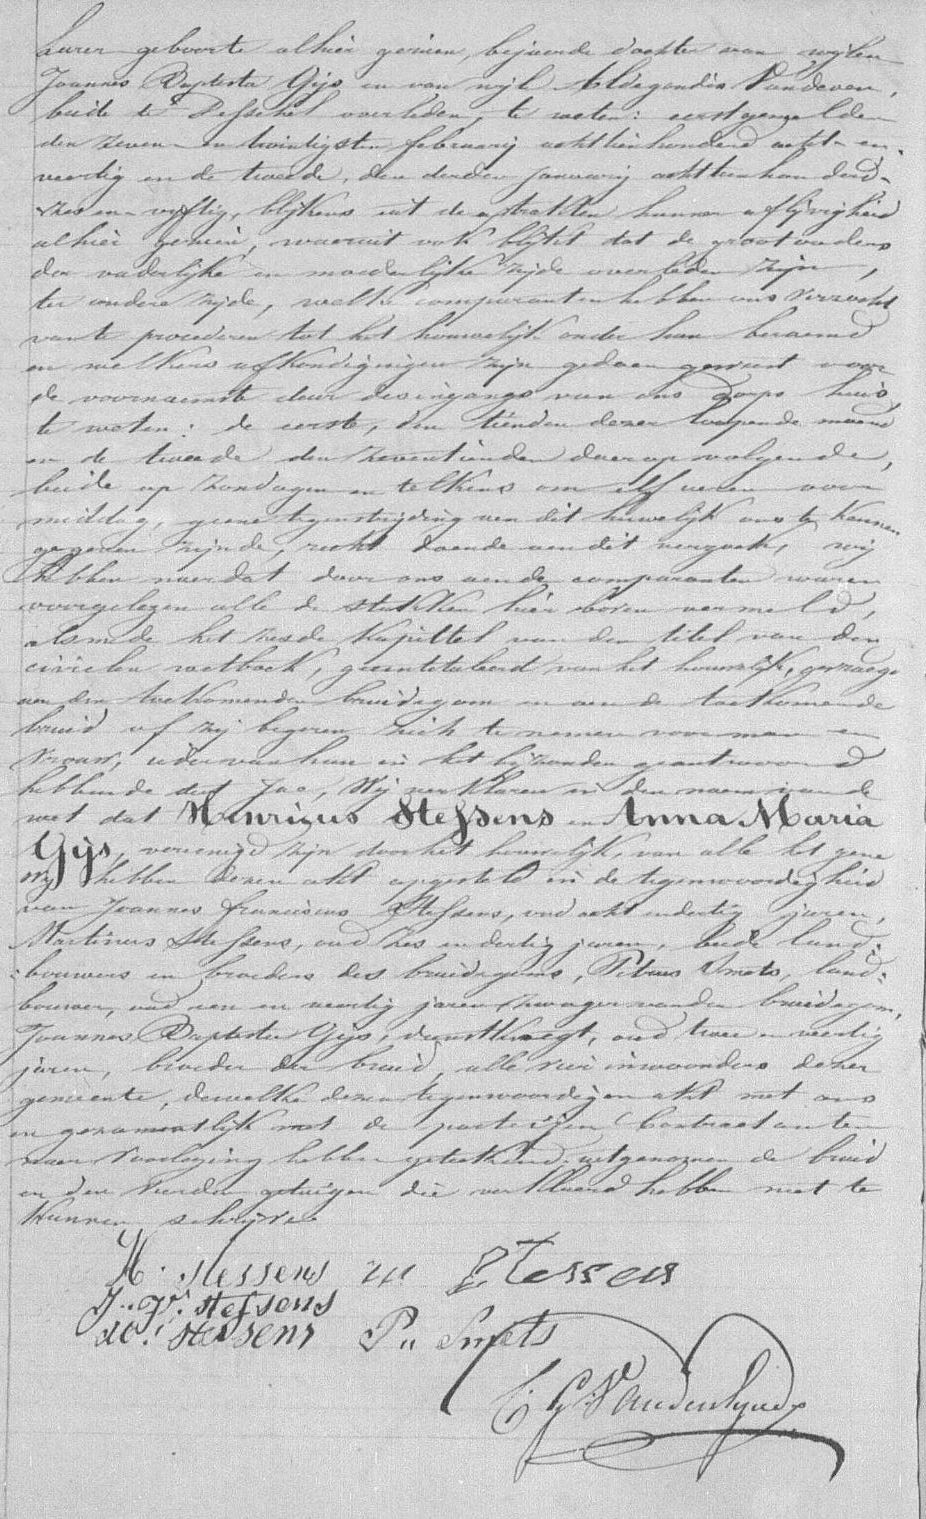 harer geboorte alhier gezien, bejaarde dochter van wijlen
Joannes Baptista Gijs en van wijl. Aldegondis Vandeven,
beide te Desschel overleden, te weten: eerstgemelden
den zeven- en twintigsten februarij achttienhonderd acht- en-
veertig en de tweede, den derden januarij achttienhonderd-
zes en- vyftig, blijkens uit de extrakten hunner aflijvigheid
alhier gezien, waaruit ook blijkt dat de grootouders
der vaderlijke en moederlijke zijde overleden zijn,
ter andere zijde, welke comparanten hebben ons verzocht
van te procederen tot het houwelijk onder hun beraemd
en welkers afkondigingen zijn gedaen geweest voor
de voornaemste deur des ingangs van ons dorps huis,
te weten: de eerste, den tienden dezer loopende maend
en de tweede den zeventienden daeropvolgende,
beide op zondagen en telkens om elf uren voor
middag, geene tegenstrijding van dit huwelijk ons te kennen
gegeven zijnde, recht doende aen dit verzoek, wij
hebben naerdat door ons aen de comparanten waren
voorgelezen alle de stukken hier boven vermeld,
alsmede het zesde kapittel van den titel van den
civielen wetboek, geintituleerd van het houwelijk, gevraegd
aen den toekomenden bruidegom en aen de toekomende
bruid of zij begeren zich te nemen voor man en
vrouw, ieder van hun in het bijzonder geantwoord
hebbende dat Jae, Wij verklaren in den naem van de
wet dat Henricus Stessens en Anna Maria
Gijs, vereenigd zijn door het houwelijk, van alle het gene
wij hebben dezen akt opgesteld in de tegenwoordigheid
van Joannes Franciscus Stessens, oud acht en dertig jaren,
Martinus Stessens, oud zes en dertig jaren, beide land-
bouwers en broeders des bruidegoms, Petrus Smets, land-
bouwer, oud een en veertig jaren zwager van den bruidegom,
Joannes Baptista Gijs, dienstknegt, oud twee en veertig
jaren, broeder der bruid, alle vier inwoonders dezer
gemeente, dewelke dezen tegenwoordigen akt met ons
en gezamentlijk met de partijen Contractanten
naer voorlezing hebben geteekend, uitgenomen de bruid
en den vierden getuigen die verklaerd hebben niet te
kunnen schrijven
H. Stessens Stessens
J. Fr. Stessens
M. Stessens P. Smets